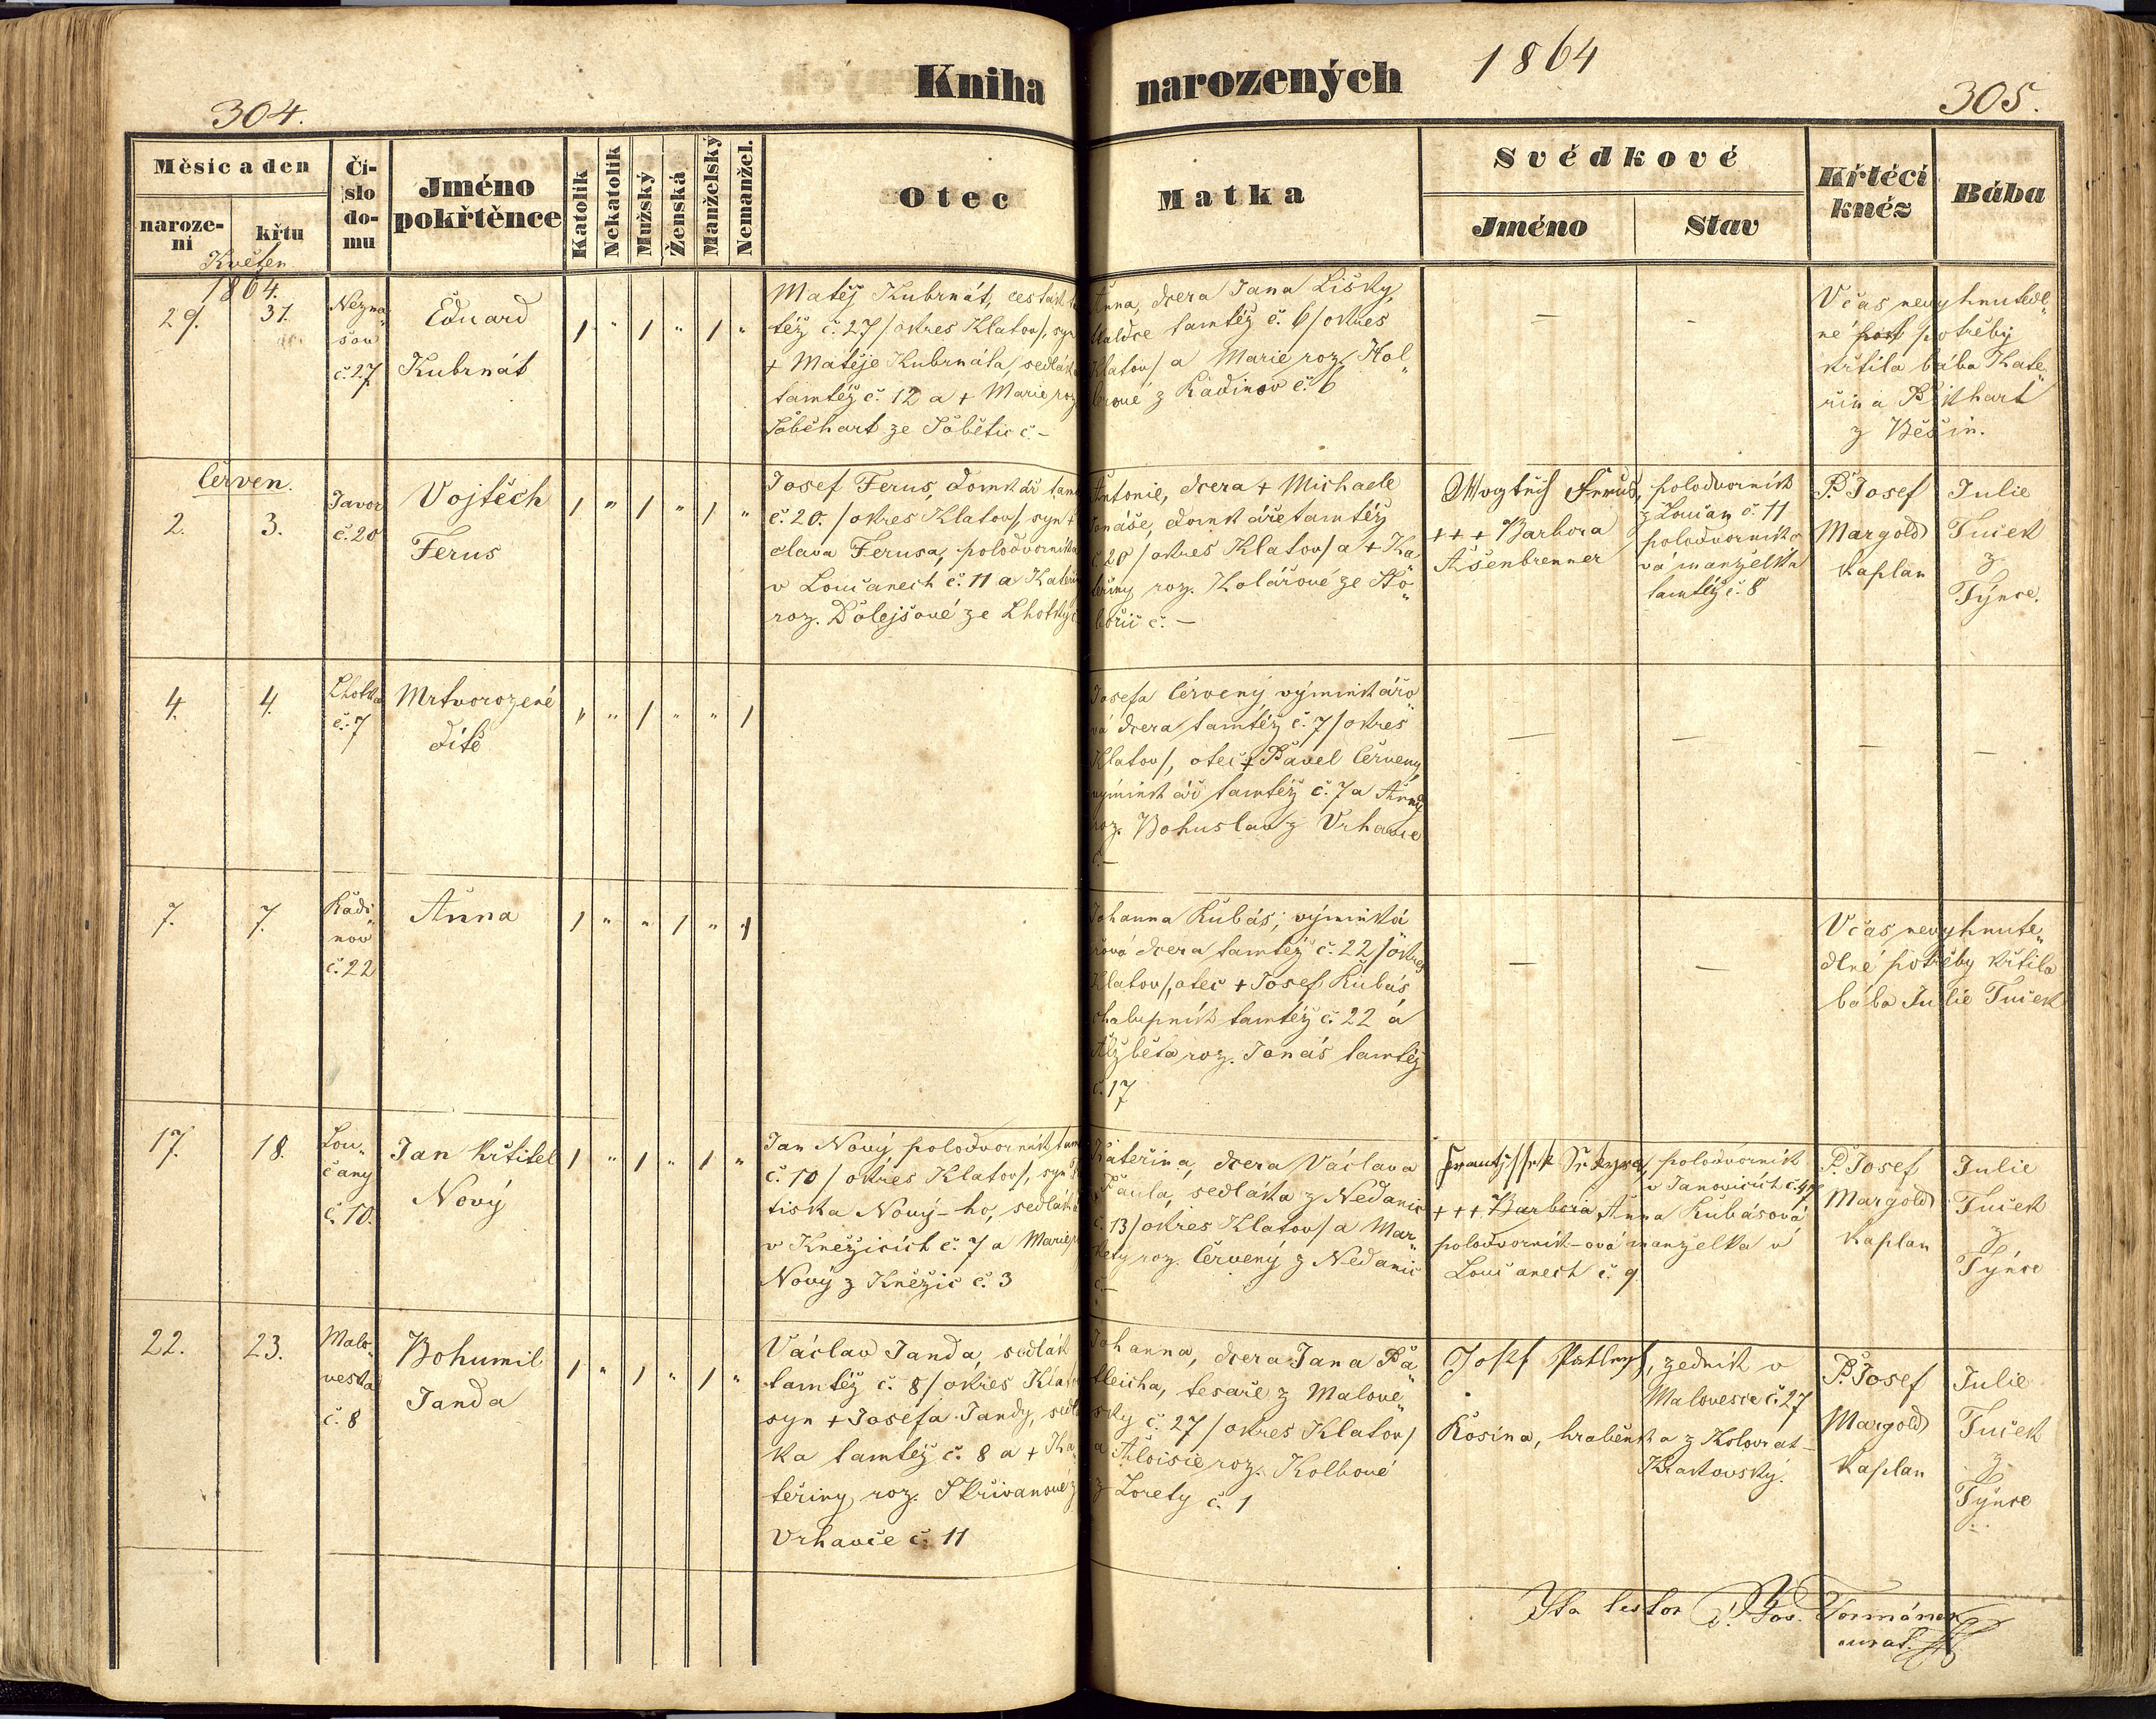 Kniha narozených 1864
304.
305.
Měsíc a den
narození
křtu
Číslo domu
Jméno pokřtěnce
Katolík
Nekatolík
Mužský
Ženská
Manželský
Nemanžel.
Otec
Matka
Svědkové
Jméno
Stav
Křtěcí kněz
Bába
Květen
1864.
29.
31.
Nezna„
šov
č. 27
Eduard
Kubrnát
/ „ / „ / „
Matěj Kubrnát, cestář
též č. 27 /okres Klatov/, syn
+ Matěje Kubrnáta, sedláka
tamtéž č. 12 a + Marie roz.
ze Sobětic č. –
Anna, dcera Jana Lišky,
tamtéž č. 6 /okres
Klatov/ a Marie roz. Hol„
z Radinov č. 6
–
–
V čas nevyhnutedl„
né potřeby
křtila bába Kate„
řina
z Běšin.
Červen.
2.
3.
Javor
č. 20
Vojtěch
Ferus
/ „ / „ / „
Josef Ferus, domkář tam
č. 20. /okres Klatov/, syn +
clava Ferusa, polodvorníka
v Loučanech č. 11 a Kateřiny
roz. Dolejšové ze Lhotky č.
Antonie, dcera + Michaele
Jonáše, domkáře tamtéž
č. 20 /okres Klatov/ a + Ka„
teřiny roz. Kolářové ze Sto„
bořic č. –
Wogtěch Ferus,
+ + + Barbora
Ašenbrenner
polodvorník
z Loučan č. 11
polodvorníko„
vá manželka
tamtéž č. 8
P. Josef
Margold
kaplan
Julie
Tuček
z
Týnce.
4.
4.
Lhotka
č. 7
Mrtvorozené
dítě
„ „ / „ „ /
Josefa Červený, výminkářo„
vá dcera tamtéž č. 7 /okres
Klatov/, otec + Pavel Červený,
výminkář tamtéž č. 7 a Anna
roz. Bohuslav z Vrhavče
č. –
–
–
–
–
7.
7.
Radi„
nov
č. 22
Anna
/ „ „ / „ /
Johanna Kubás, výminká„
řová dcera tamtéž č. 22 /okres
Klatov/, otec + Josef Kubás
chalupník tamtéž č. 22 a
Alžběta roz. Jonáš tamtéž
č. 17
–
–
V čas nevyhnute„
dlné potřeby křtila
bába Julie Tuček
17.
18.
Lou„
čany
č. 10.
Jan Křtitel
Nový
/ „ / „ / „
Jan Nový polodvorník tam
č. 10 /okres Klatov/, syn
tiska Nový-ho, sedláka
v Kněžicích č. 7 a Marie
Nový z Kněžic č. 3
Kateřina, dcera Václava
Paula, sedláka z Nedanic
č. 13 /okres Klatov/ a Mar„
kety roz. Červený z Nedanic
č. –
polodvorník
v Janovicích č. 47
+ + + Barbora Anna Kubásová
polodvorník-ová manželka v
Loučanech č. 9
P. Josef
Margold
kaplan
Julie
Tuček
z
Týnce
22.
23.
Malo„
veska
č. 8
Bohumil
Janda
/ „ / „ / „
Václav Janda, sedlák
tamtéž č. 8 /okres Klatov
syn + Josefa Jandy, sedlá
ka tamtéž č. 8 a + Ka„
teřiny, roz. Skřivanové z
Vrhavče č. 11
Johanna, dcera Jana Pa„
tleicha, tesaře z Malove„
sky č. 27 /okres Klatov/
a Aloisie roz. Kolbové
z Lorety č. 1
Josef, zedník v
Malovesce č. 27
Rosina, hraběnka z Kolovrat-
Krakovský.
P. Josef
Margold
kaplan
Julie
Tuček
z
Týnce
Ita testor P. Jos. Tománek
curat.